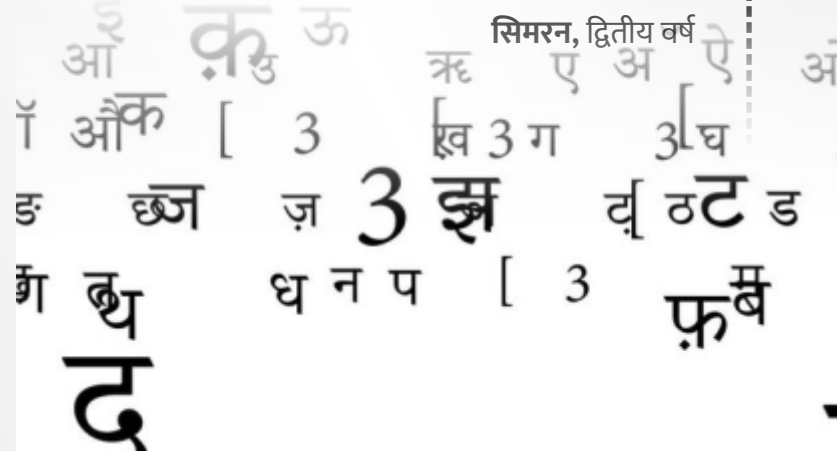 सिमरन, द्वितीय वर्ष
इ क़ ऊ
आ उ ऋ ए अ ऐ
औ क [ 3 [ ख़ 3 ग 3 [ घ
ङ छ ज ज़ 3 झ ट [ ठ ट ड
ण त थ ध न प [ 3 फ़ ब म
द